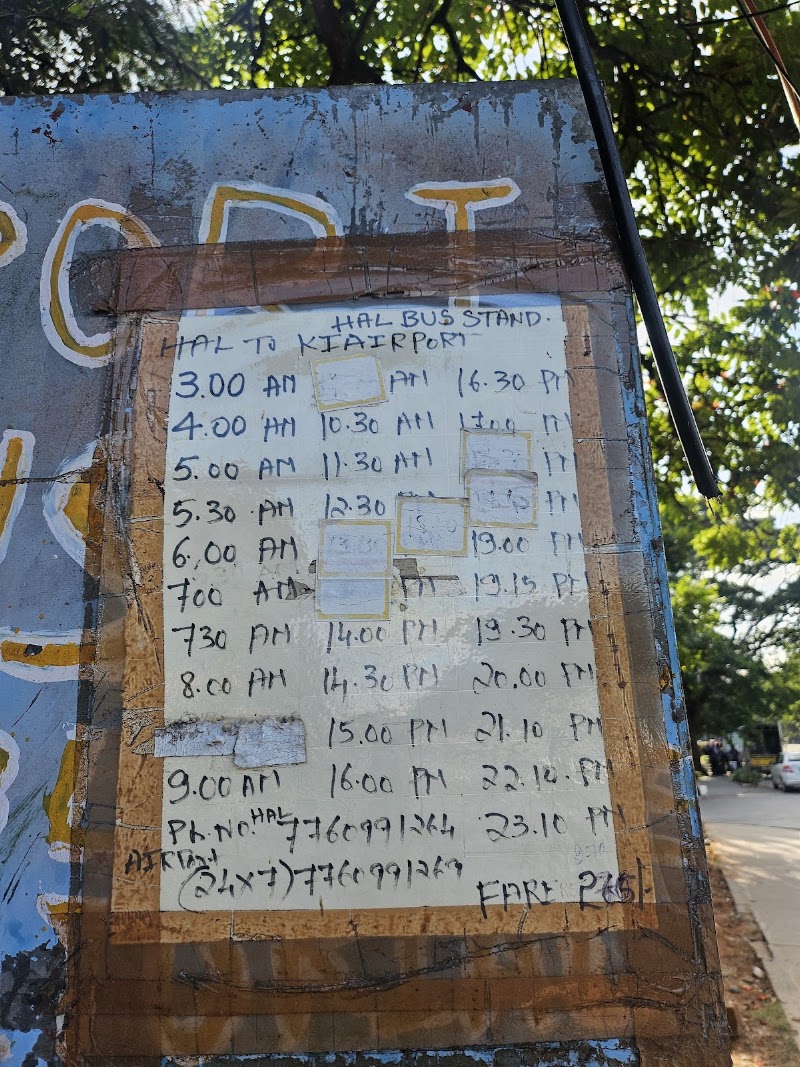 PORT
HAL BUS STAND.
HAL TO KIAIRPORT
3.00 AM AM 16.30 PM
4.00 AM 10.30 AM 17.00 PM
5.00 AM 11.30 AM PM
5.30 AM 12.30 PM
6.00 AM 19.00 PM
700 AM PM 19.15 PM
730 AM 14.00 PM 19.30 PM
8.00 AM 14.30 PM 20.00 PM
15.00 PM 21.10 PM
9.00 AM 16.00 PM 22.10. PM
Ph.No. HAL 7760991264 23.10 PM
AIRPORT
(24x7) 7760991269
FARE 275/-